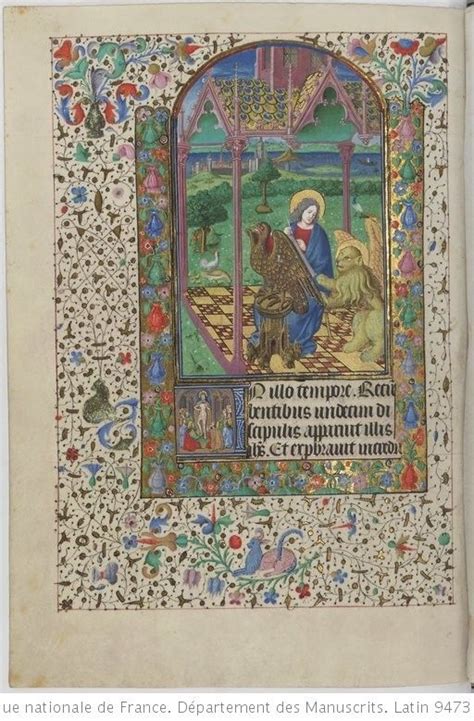 IN illo tempore. Recū
bentibus undecim di
scipulis apparuit illis
ihs. Et exprobravit incredu
ue nationale de France. Département des Manuscrits. Latin 9473